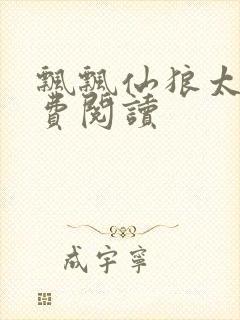 飄飄仙狼太
費閱讀
成宇寧